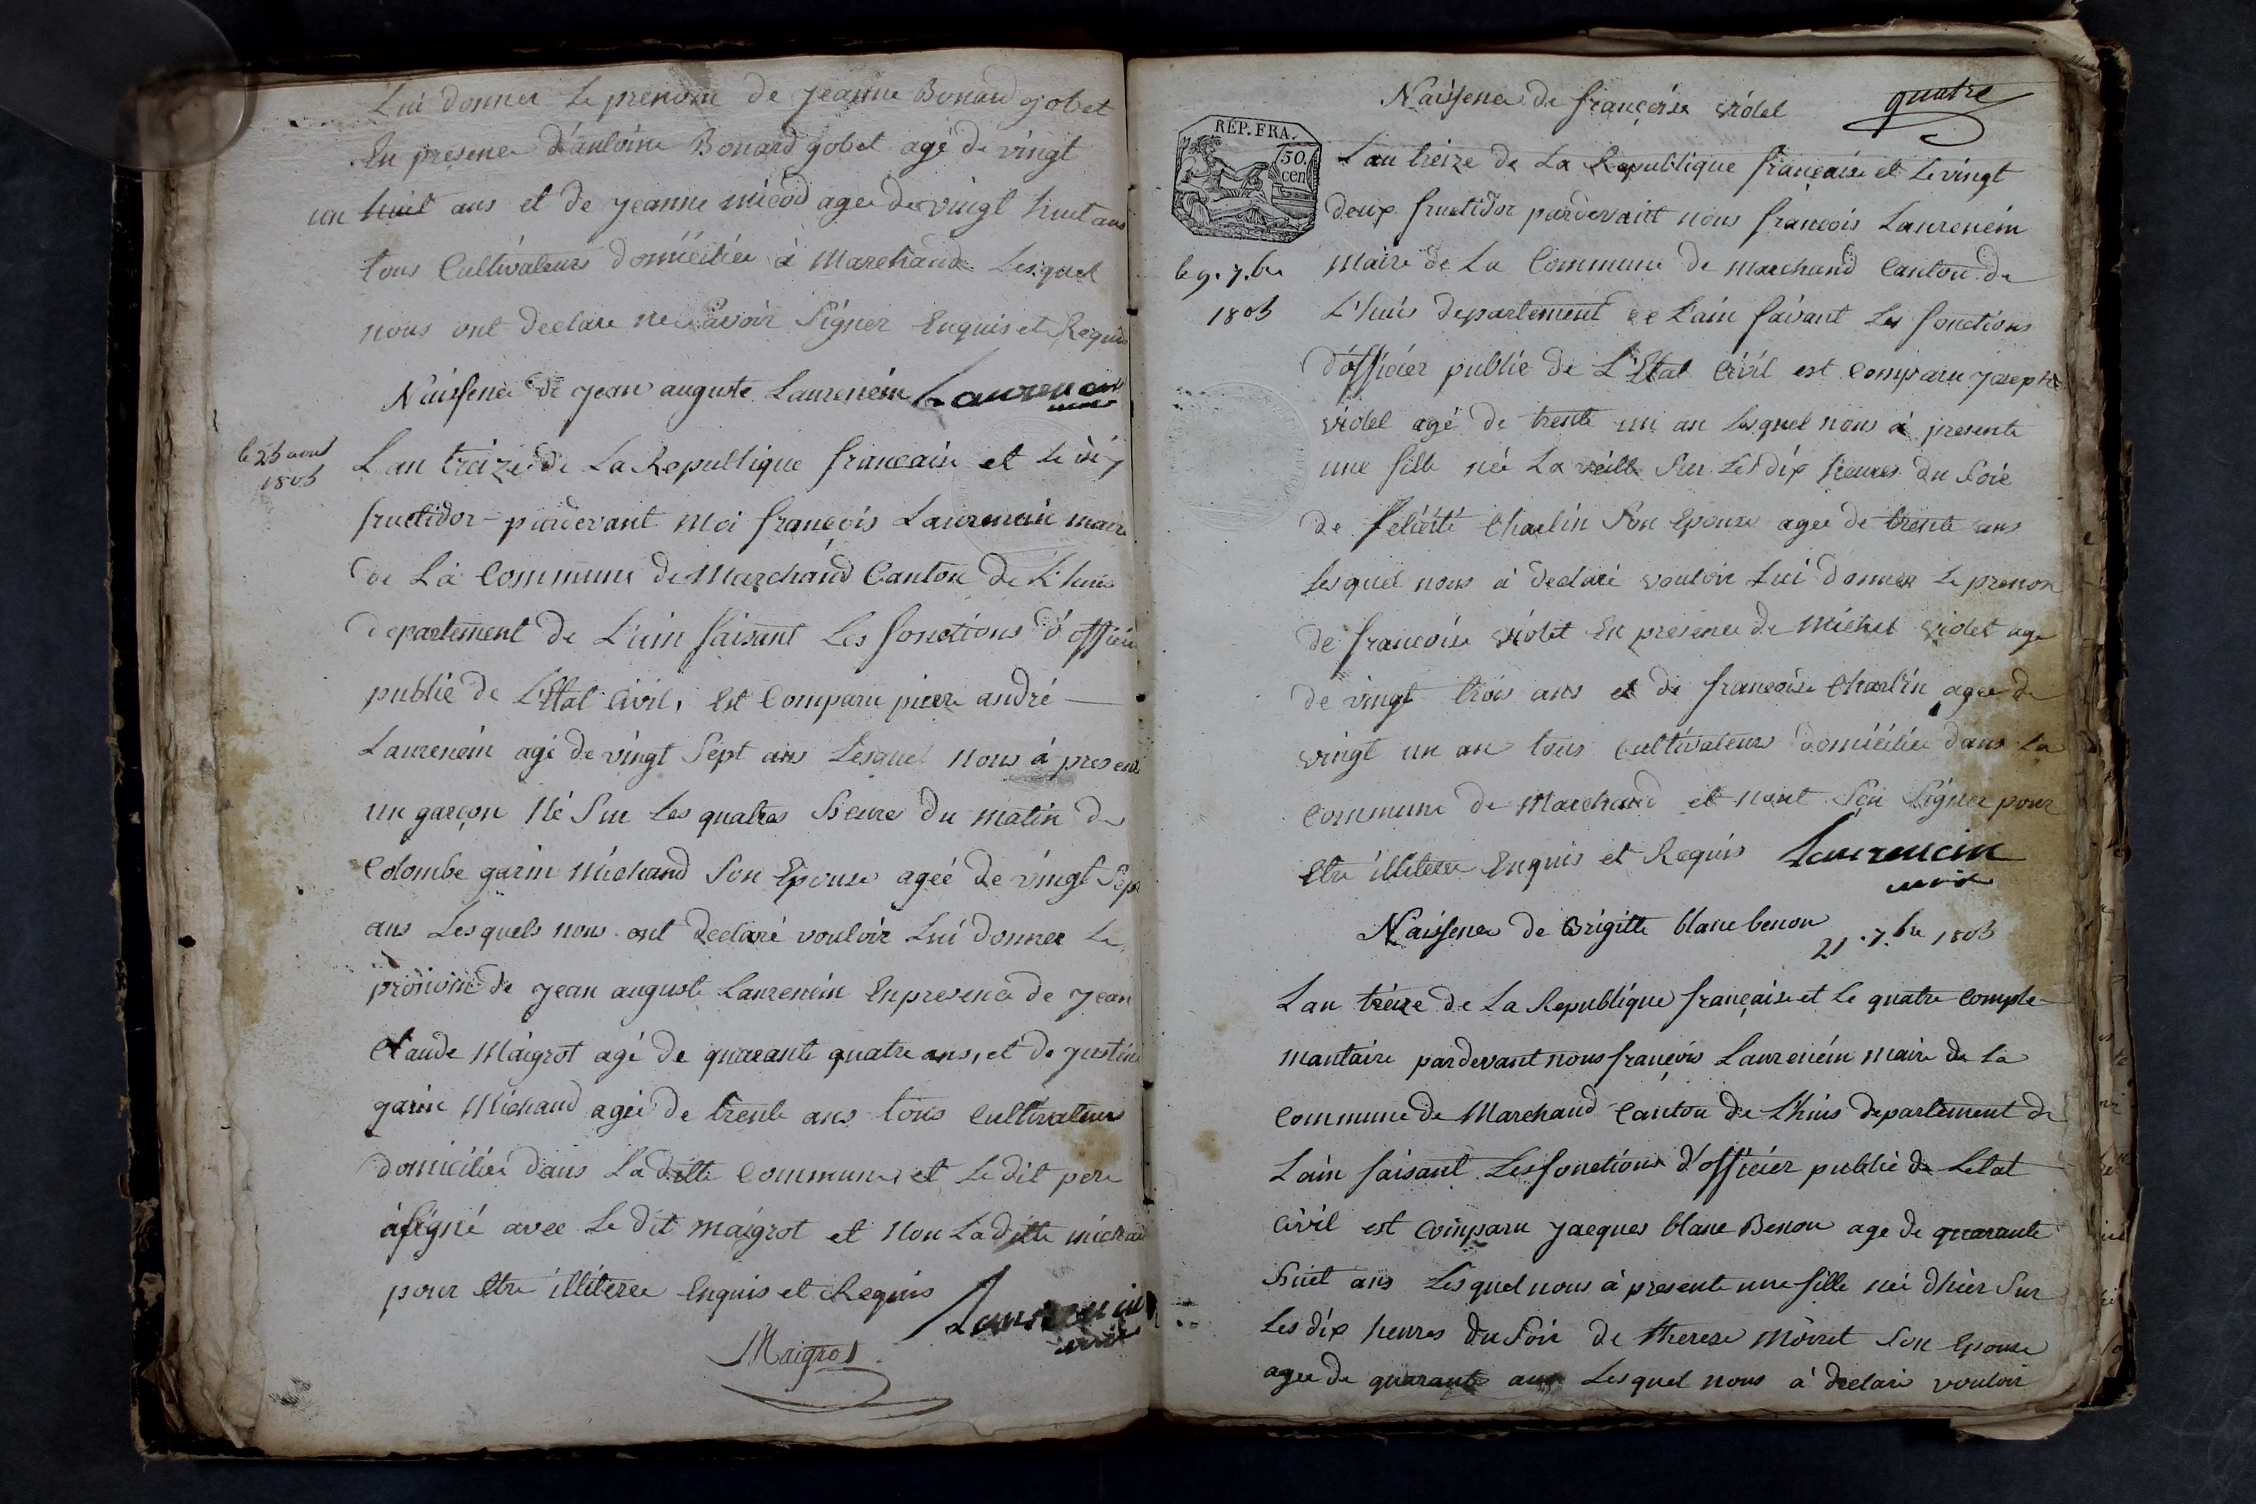 Lui donner Le prenom de jeanne Bonard gobet
En presence d'antoine Bonard gobet agé de vingt
un huit ans et de jeanne micod agée de vingt huit ans
tous Cultivateurs domiciliée à Marchand Lesquel
nous ont declare ne savoir Signer Enquis et Requis
Naissence de jean auguste Laurencin Laurencin
maire
le 25 aout
1805
L an treize de La Republique francaise et le
fructidor pardevant moi françois Laurencin maire
de La Commune de Marchand Canton de L'huis
departement de L'ain faisant Les fonctions d'officier
public de L'Etat Civil, Est Comparu pierre andré
Laurencin agé de vingt Sept ans Lesquel nous à presenté
un garçon Né Sur Les quatres heures du matin de
Colombe garin Michaud Son Epouse ageé de vingt Sept
ans Lesquels nous ont declaré vouloir Lui donner Le
prenom de jean auguste Laurencin En presence de jean
Claude Maigrot agé de quarante quatre ans, et de justine
garin Michaud agée de trente ans tous Cultivateurs
domiciliée dans La ditte Commune et Le dit pere
à signé avec Le dit Maigrot et Non La ditte michaud
pour Etre illiterée Enquis et Requis
Laurencin
maire
Maigrot
Naissence de françoise violet
quatre
RÉP. FRA.
50.
cen
L an treize de La Republique française et Le vingt
deux fructidor pardevant nous francois Laurencin
le 9. 7.bre
1805
Maire de La Commune de Marchand Canton de
L'huis departement de L'ain faisant Les fonctions
d'officier public de L'Etat Civil est Comparu joseph
violet agé de trente un an Lesquel nous à presente
une fille née La veille Sur Les dix heures du Soir
de felicité Charlin Son Epouse agée de trente ans
Lesquel nous à declaré vouloir Lui donner Le prenom
de françoise violet En presence de Michel violet age
de vingt trois ans et de françoise Charlin agée de
vingt un an tous Cultivateurs domiciliée dans La
Commune de Marchand et nont Seu Signer pour
Etre illiterée Enquis et Requis Laurencin
maire
Naissence de Brigitte blanc benon
21. 7.bre 1805
L an treize de La Republique française et Le quatre Comple-
mantaire pardevant nous françois Laurencin maire de La
Commune de Marchand Canton de L'huis departement de
L'ain faisant Les fonctions d'officier public de Letat
Civil est Comparu jacques blanc Benon age de quarante
huit ans Lesquel nous à presente une fille née d'hier Sur
Les dix heures du Soir de therese Moiret Son Epouse
agée de quarante ans Lesquel nous à declare vouloir